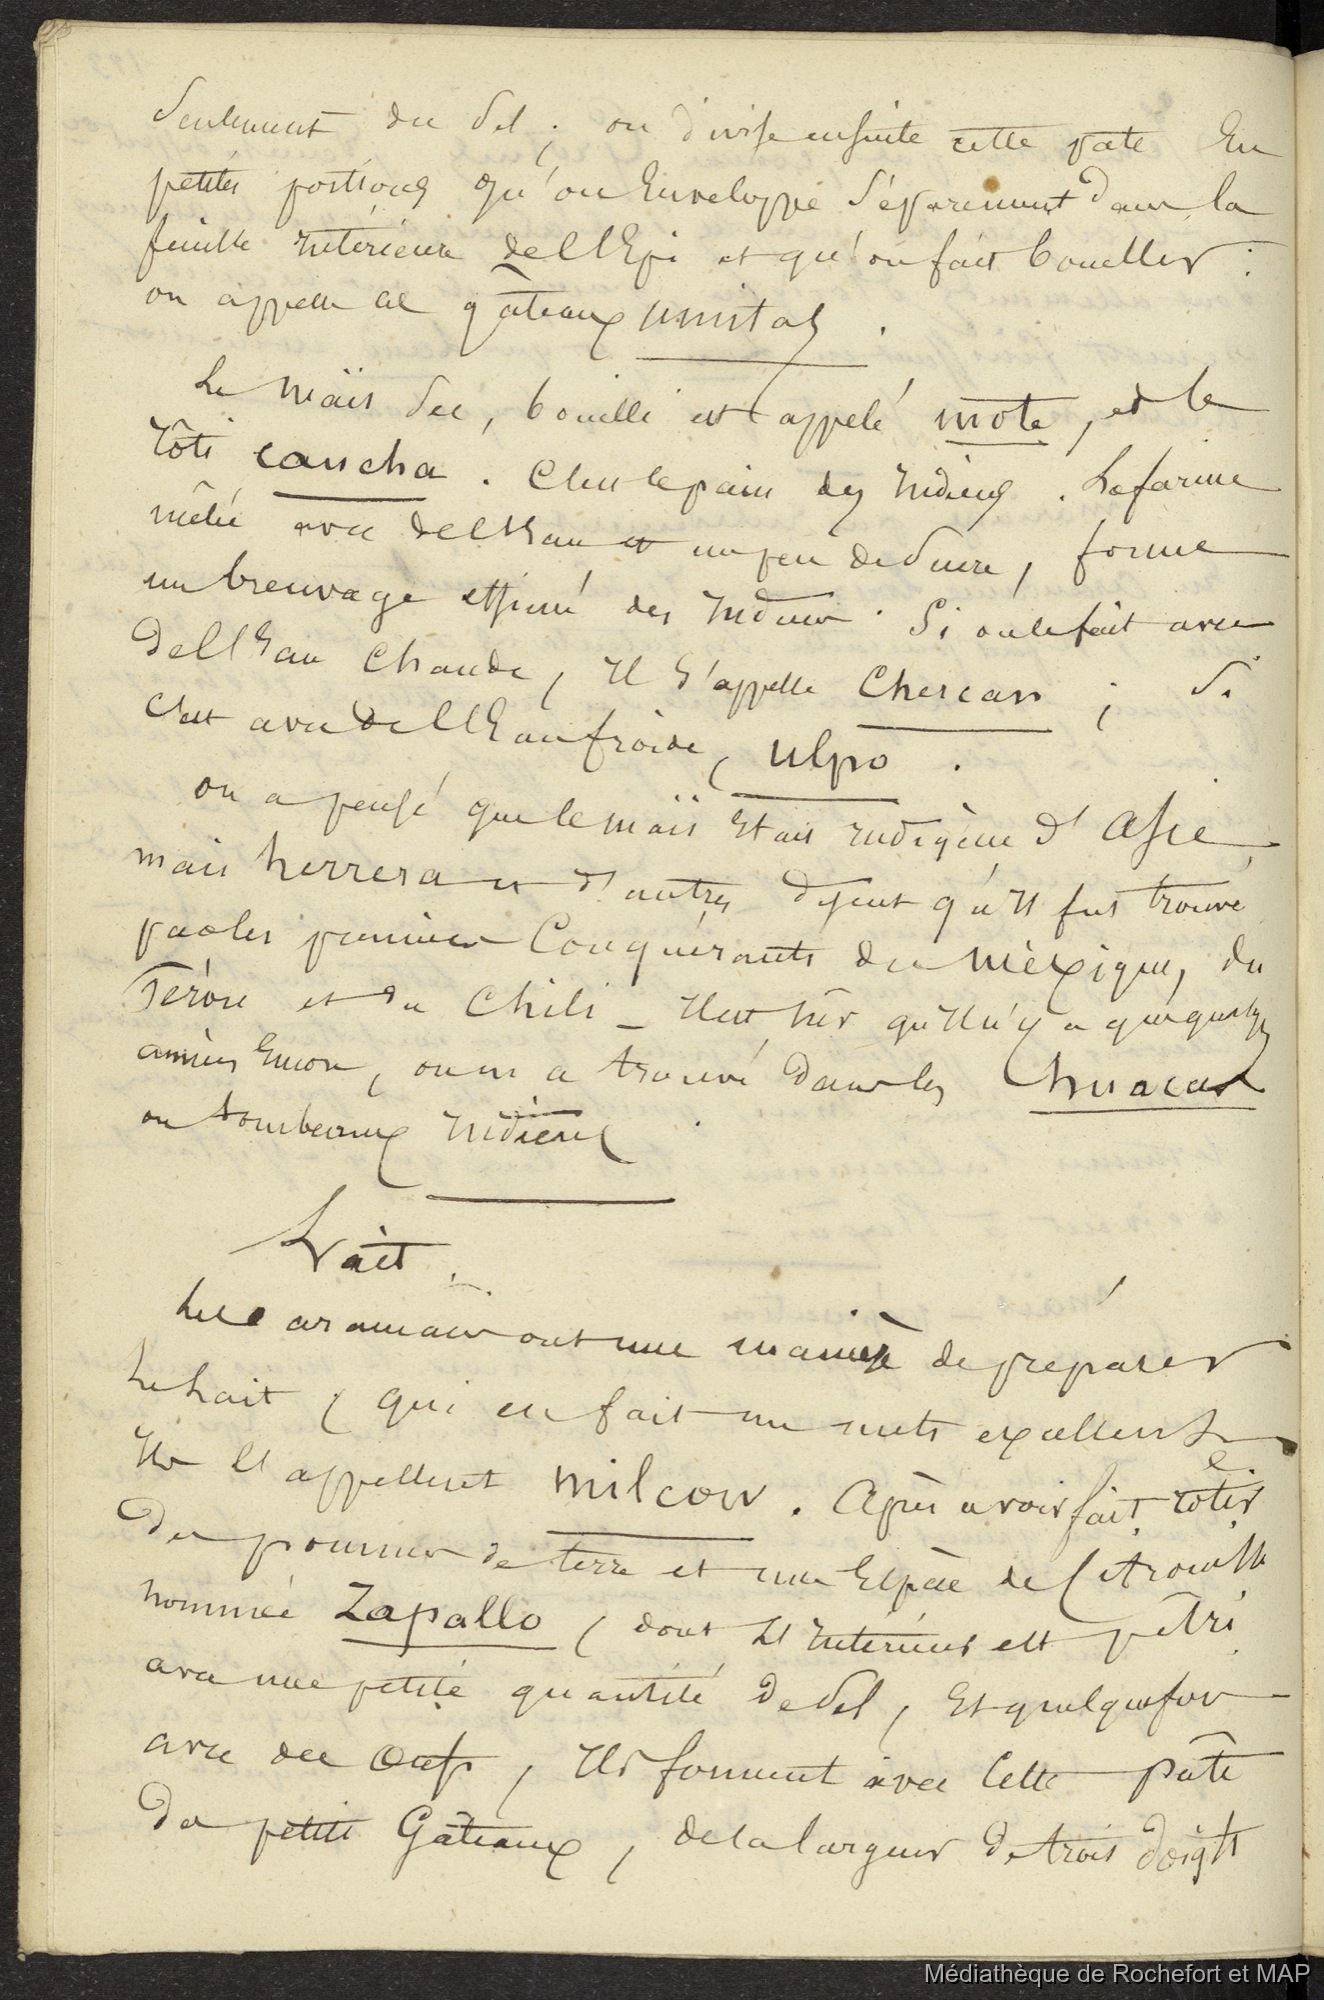 Seulement du Sel ; on divise ensuite cette pate En
petites portions qu'on Enveloppe Séparement dans la
feuille Intérieure de l'Epi et qu'on fait bouillir :
on appelle ces gâteaux umitas .
Le Maïs Sec, bouilli est appelé mote, et le
rôti cancha . C'est le pain des Indiens . La farine
mêlée avec de l'Eau et un peu de Sucre, forme
un breuvage estimé des Indiens . Si on le fait avec
de l'Eau Chaude, Il S'appelle Chercan ; Si
C'est avec de l'Eau froide, ulpo .
on a pensé que le maïs Etait Indigène d'Asie,
mais herrera et d'autres disent qu'Il fut trouvé
par les premiers Conquérants du Méxique, du
Pérou et du Chili _ Il est sûr qu'Il n'y a que quelques
années Encore, on en a trouvé dans les huacas
ou tombeaux Indiens .
Lait .
Les araucans ont une manière de préparer
Le Lait, qui en fait un mets excellent
Ils l'appellent milcow . Après avoir fait rôtir
Des pommes de terre et une Espèce de Citrouille
nommée Zapallo, dont l'Intérieur est pétri
avec une petite quantité de Sel, Et quelquefois
avec des Oeufs, Ils forment avec Cette pâte
De petits Gâteaux, de la largeur de trois doigts
Médiathèque de Rochefort et MAP